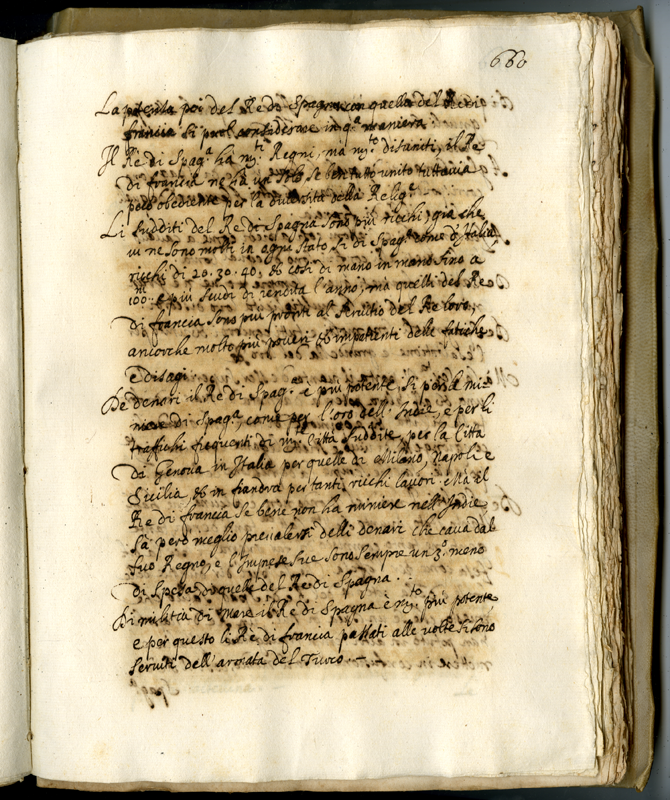 660
La potenza poi del Re di Spagna con quella del Re di
francia si può considerare in q.ª maniera
Il Re di Spag.ª hà m.ti Regni, ma m.to disuniti, il Re
di francia ne hà un solo se ben tutto unito tuttavia
poco obediente per la diversità della Relig.e
Li sudditi del Re di Spagna sono più ricchi, già che
vi ne sono molti in ogni stato sì di Spag.ª come d'Italia
ricchi di 20. 30. 40. et così di mano in mano sino a
100.m e più scudi di rendita l'anno, ma quelli del Re
di francia sono più pronti al servitio del Re loro,
ancorche molto più poveri et impatienti delle fatiche
e disagi
De denari il Re di Spag.ª e più potente, si per le mi-
niere di Spag.ª come per l'oro dell'Indie, e per li
traffichi frequenti di m.te Città suddite, per la Città
di Genova in Italia per quelle di Milano, Napoli e
Sicilia, et in fiandra per tanti ricchi lavori. Ma il
Re di francia se bene non ha miniere nell'Indie,
sà però meglio prevalersi delli denari che cava dal
suo Regno, e l'Imprese sue sono sempre un 3.o meno
di spesa di quelle del Re di Spagna.
Di militia di mare il Re di Spagna è m.to più potente
e per questo li Re di francia passati alle volte si sono
serviti dell'armata del Turco
Spag.ª